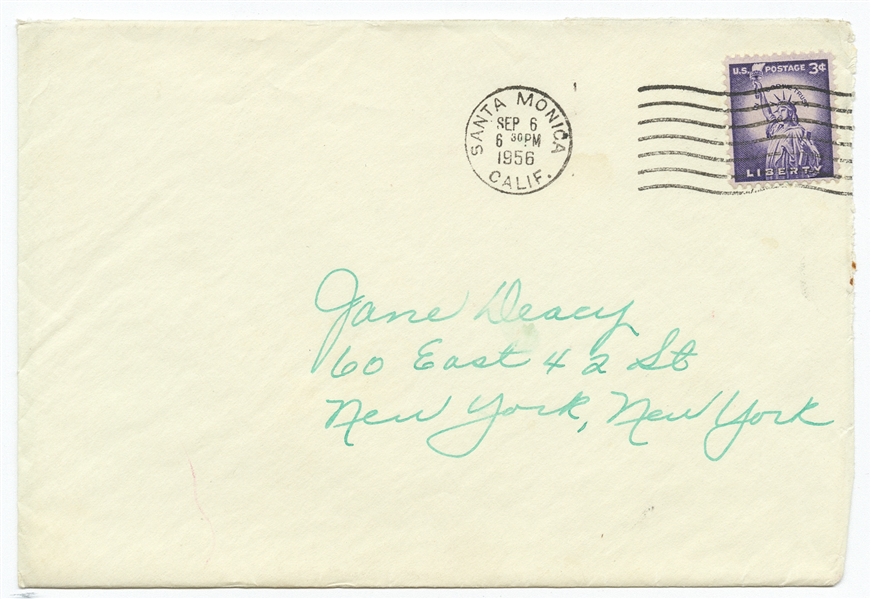 SANTA MONICA
SEP 6
6 30PM
1956
CALIF.
U.S. POSTAGE 3¢
IN GOD WE TRUST
LIBERTY
Jane Deacy
60 East 42 St
New York, New York